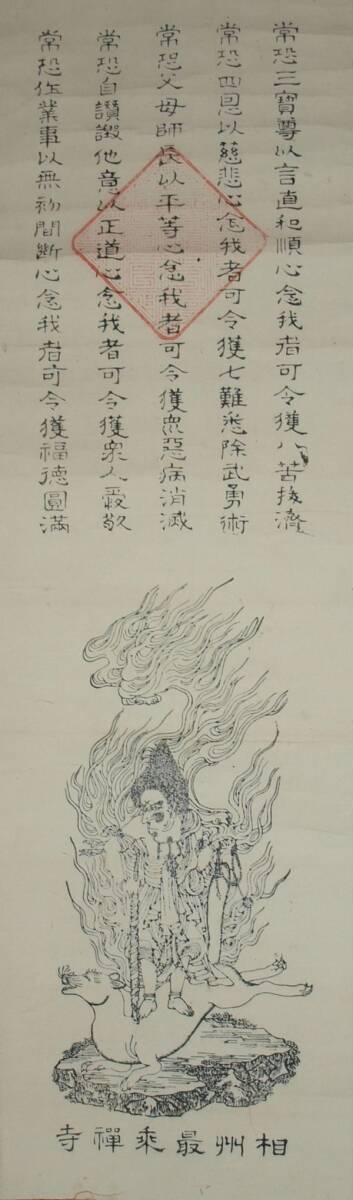 常恐三寳尊以言直和順心念我者可令獲八苦抜濟
常恐四恩以慈悲心念我者可令獲七難悉除武勇術
常恐父母師長以平等心念我者可令獲衆惡病消滅
常恐自讃毀他意以正道心念我者可令獲衆人愛敬
常恐作業事以無初間断心念我者可令獲福德圓滿
相州最乘禪寺